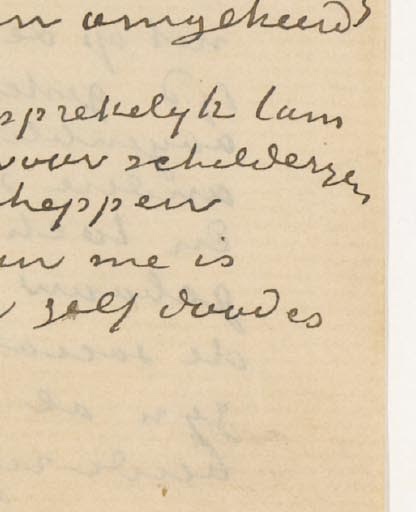 n omgekeerd
sprekelyk lam
voor schilderyen
heppen
an me is
zelf dood es